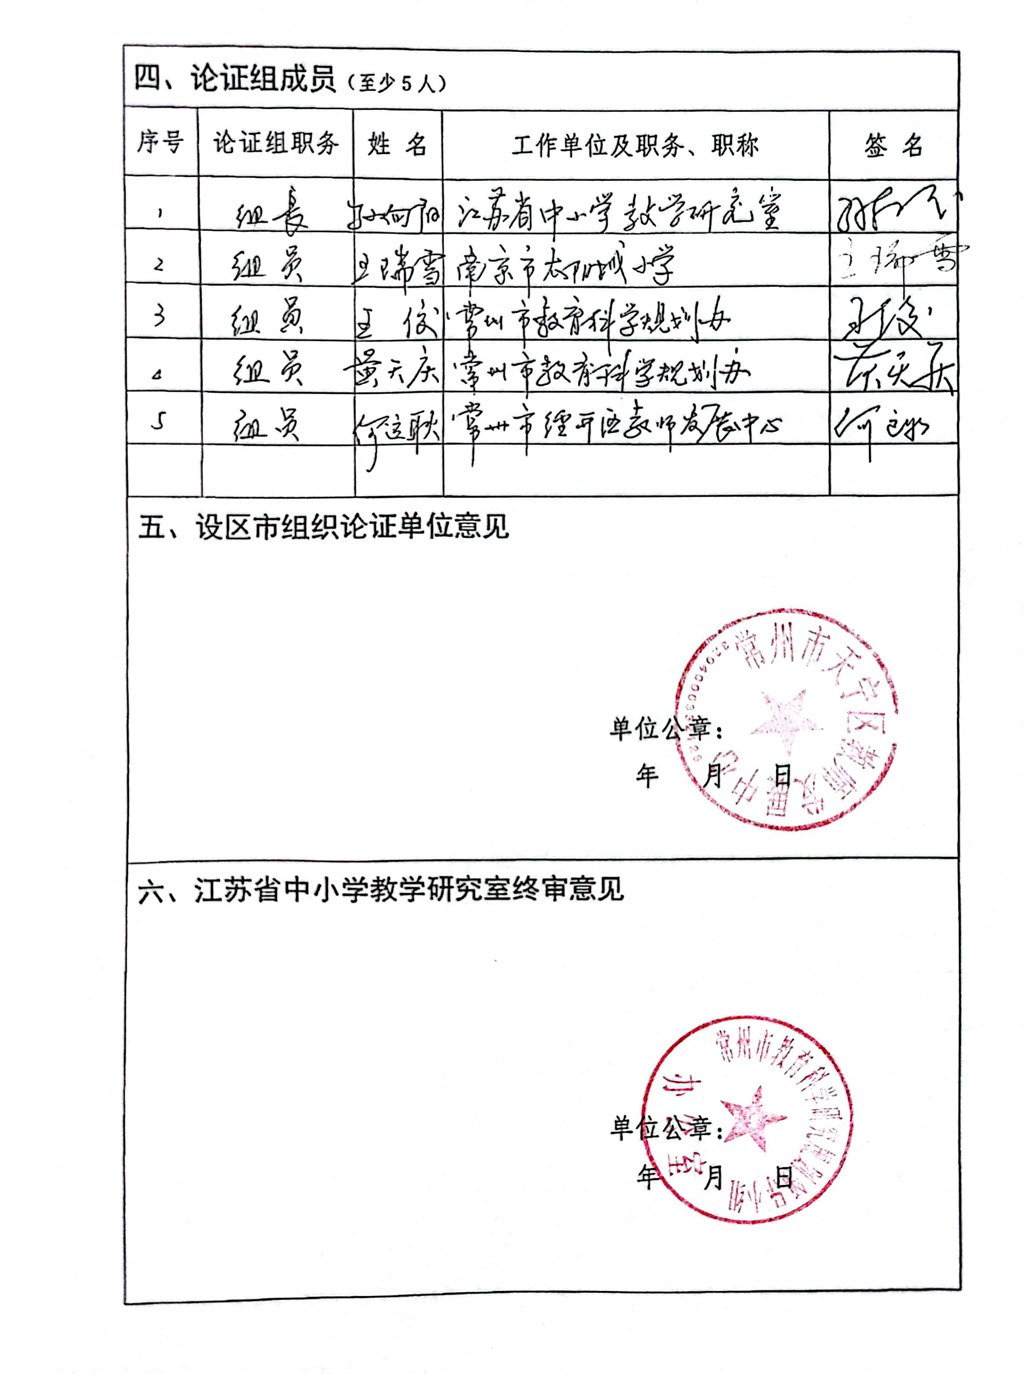 四、论证组成员（至少5人）
序号 论证组职务 姓 名 工作单位及职务、职称 签 名
1 组長 孙向阳 江苏省中小学教学研究室
2 组员 王瑞雪 南京市太阳城小学 王瑞雪
3 组员 王俊 常州市教育科学规划办
4 组员 黄天庆 常州市教育科学规划办 黄天庆
5 组员 何 常州市经开区教师发展中心 何
五、设区市组织论证单位意见
常州市天宁区教师发展中心
单位公章：
年 月 日
六、江苏省中小学教学研究室终审意见
常州市教育科学研究规划领导小组
办公室
单位公章：
年 月 日